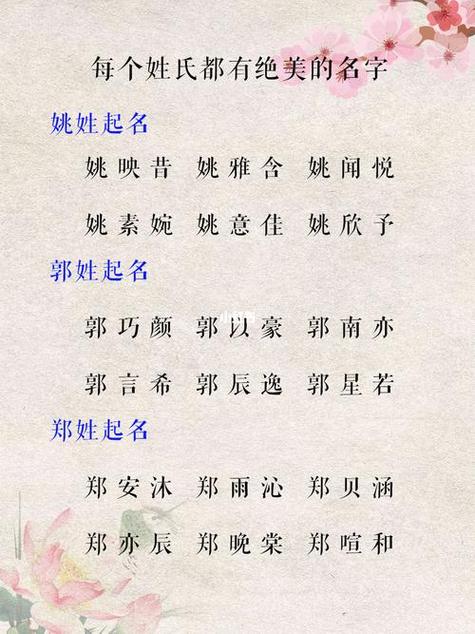 每个姓氏都有绝美的名字
姚姓起名
姚映昔 姚雅含 姚闻悦
姚素婉 姚意佳 姚欣予
郭姓起名
郭巧颜 郭以豪 郭南亦
郭言希 郭辰逸 郭星若
郑姓起名
郑安沐 郑雨沁 郑贝涵
郑亦辰 郑晚棠 郑喧和